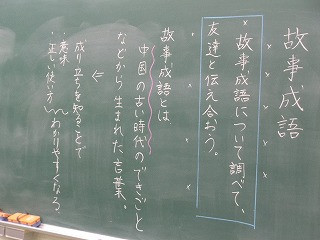 故事成語
故事成語について調べて、
友達と伝え合おう。
故事成語とは
中国の古い時代のできごと
などから生まれた言葉。
⇓
成り立ちを知ることで
・意味
・正しい使い方
わかりやすくなる。